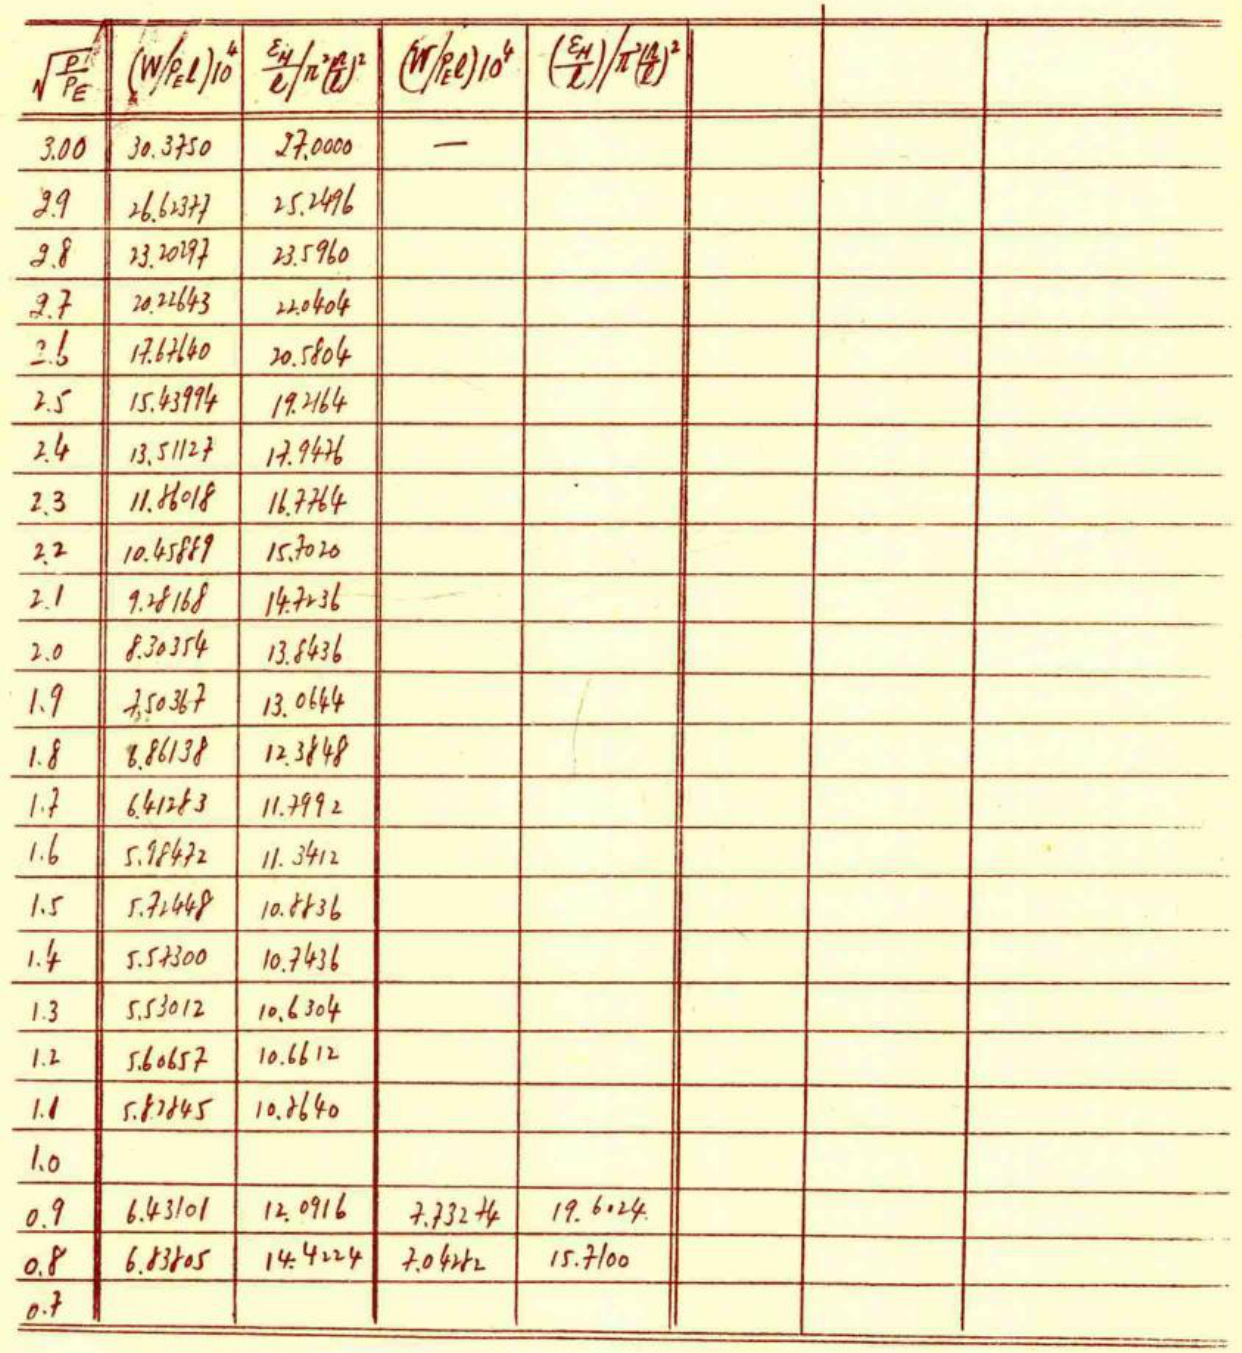 √(P/P_E) (W/P_E l)10^4 ε_M/l/π²(r/l)² (W/P_E l)10^4 (ε_M/l)/π²(r/l)²
3.00 30.3750 27.0000 —
2.9 26.62377 25.2496
2.8 23.20297 23.5960
2.7 20.22643 22.0404
2.6 17.67640 20.5804
2.5 15.43994 19.2164
2.4 13.51127 17.9476
2.3 11.86018 16.7764
2.2 10.45889 15.7020
2.1 9.28168 14.7236
2.0 8.30354 13.8436
1.9 7.50367 13.0644
1.8 6.86138 12.3848
1.7 6.41283 11.7992
1.6 5.98472 11.3412
1.5 5.72448 10.8836
1.4 5.57300 10.7436
1.3 5.53012 10.6304
1.2 5.60657 10.6612
1.1 5.82845 10.8640
1.0
0.9 6.43101 12.0916 7.73274 19.6024
0.8 6.83805 14.4224 7.04282 15.7100
0.7